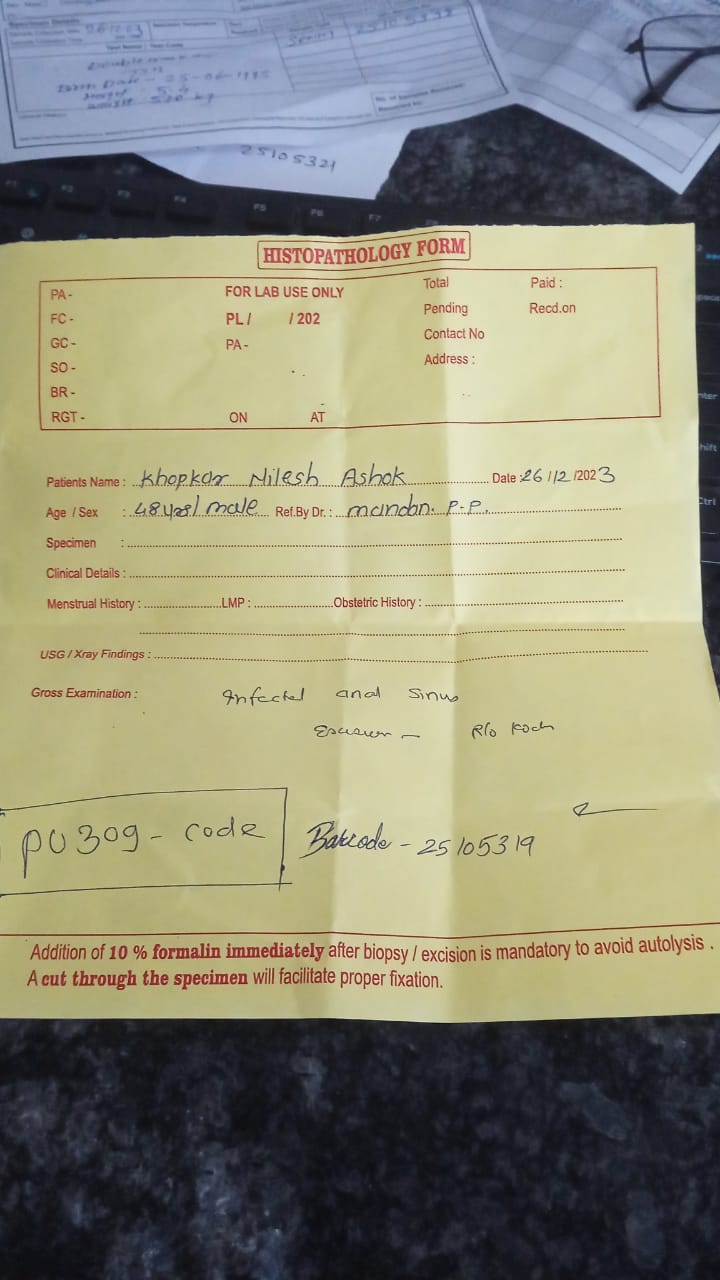 25105321
F2 F3 F4 F5 F6 F7
HISTOPATHOLOGY FORM
PA - FOR LAB USE ONLY Total Paid :
FC - PL / / 202 Pending Recd.on
GC - PA - Contact No
SO - Address :
BR -
RGT - ON AT
Patients Name : Khopkar Nilesh Ashok Date :26/12/2023
Age / Sex : 48 yrs/ male Ref.By Dr. : mandan. P.P.
Specimen :
Clinical Details :
Menstrual History : LMP : Obstetric History :
USG / Xray Findings :
Gross Examination : Infected anal sinus
Excision - R/o Koch
PU309 - code Barcode - 25105319
Addition of 10 % formalin immediately after biopsy / excision is mandatory to avoid autolysis .
A cut through the specimen will facilitate proper fixation.